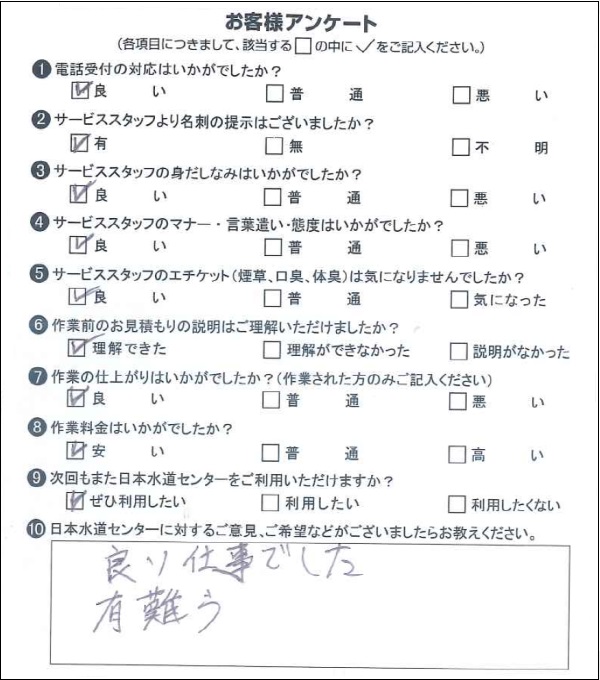 お客様アンケート
(各項目につきまして、該当する□の中に✓をご記入ください。)
❶電話受付の対応はいかがでしたか?
☑良い □普通 □悪い
❷サービススタッフより名刺の提示はございましたか?
☑有 □無 □不明
❸サービススタッフの身だしなみはいかがでしたか?
☑良い □普通 □悪い
❹サービススタッフのマナー・言葉遣い・態度はいかがでしたか?
☑良い □普通 □悪い
❺サービススタッフのエチケット(煙草、口臭、体臭)は気になりませんでしたか?
☑良い □普通 □気になった
❻作業前のお見積もりの説明はご理解いただけましたか?
☑理解できた □理解ができなかった □説明がなかった
❼作業の仕上がりはいかがでしたか?(作業された方のみご記入ください)
☑良い □普通 □悪い
❽作業料金はいかがでしたか?
☑安い □普通 □高い
❾次回もまた日本水道センターをご利用いただけますか?
☑ぜひ利用したい □利用したい □利用したくない
❿日本水道センターに対するご意見、ご希望などがございましたらお教えください。
良い仕事でした
有難う